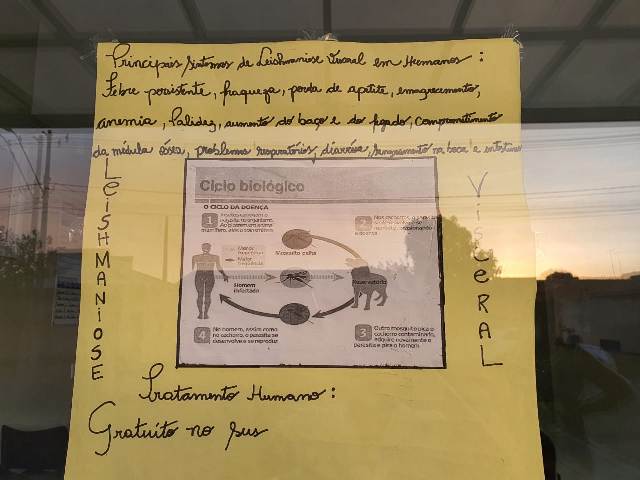 Principais sintomas de Leishmaniose Visceral em Humanos:
Febre persistente, fraqueza, perda de apetite, emagrecimento,
anemia, Palidez, aumento do baço e do fígado, comprometimento
da médula óssea, problemas respiratórios, diarréia, Sangramento na boca e intestino
LEISHMANIOSE
Ciclo biológico
O CICLO DA DOENÇA
1
2
Nos cachorros, o
Menor
Maior
Mosquito palha
Homem
infectado
Reservatório
4 No homem, assim como
no cachorro, o parasita se
desenvolve e se reproduz
3 Outro mosquito pica o
cachorro contaminado,
adquire novamente o
parasita e pica o homem
VisceRAL
Tratamento Humano:
Gratuito no sus